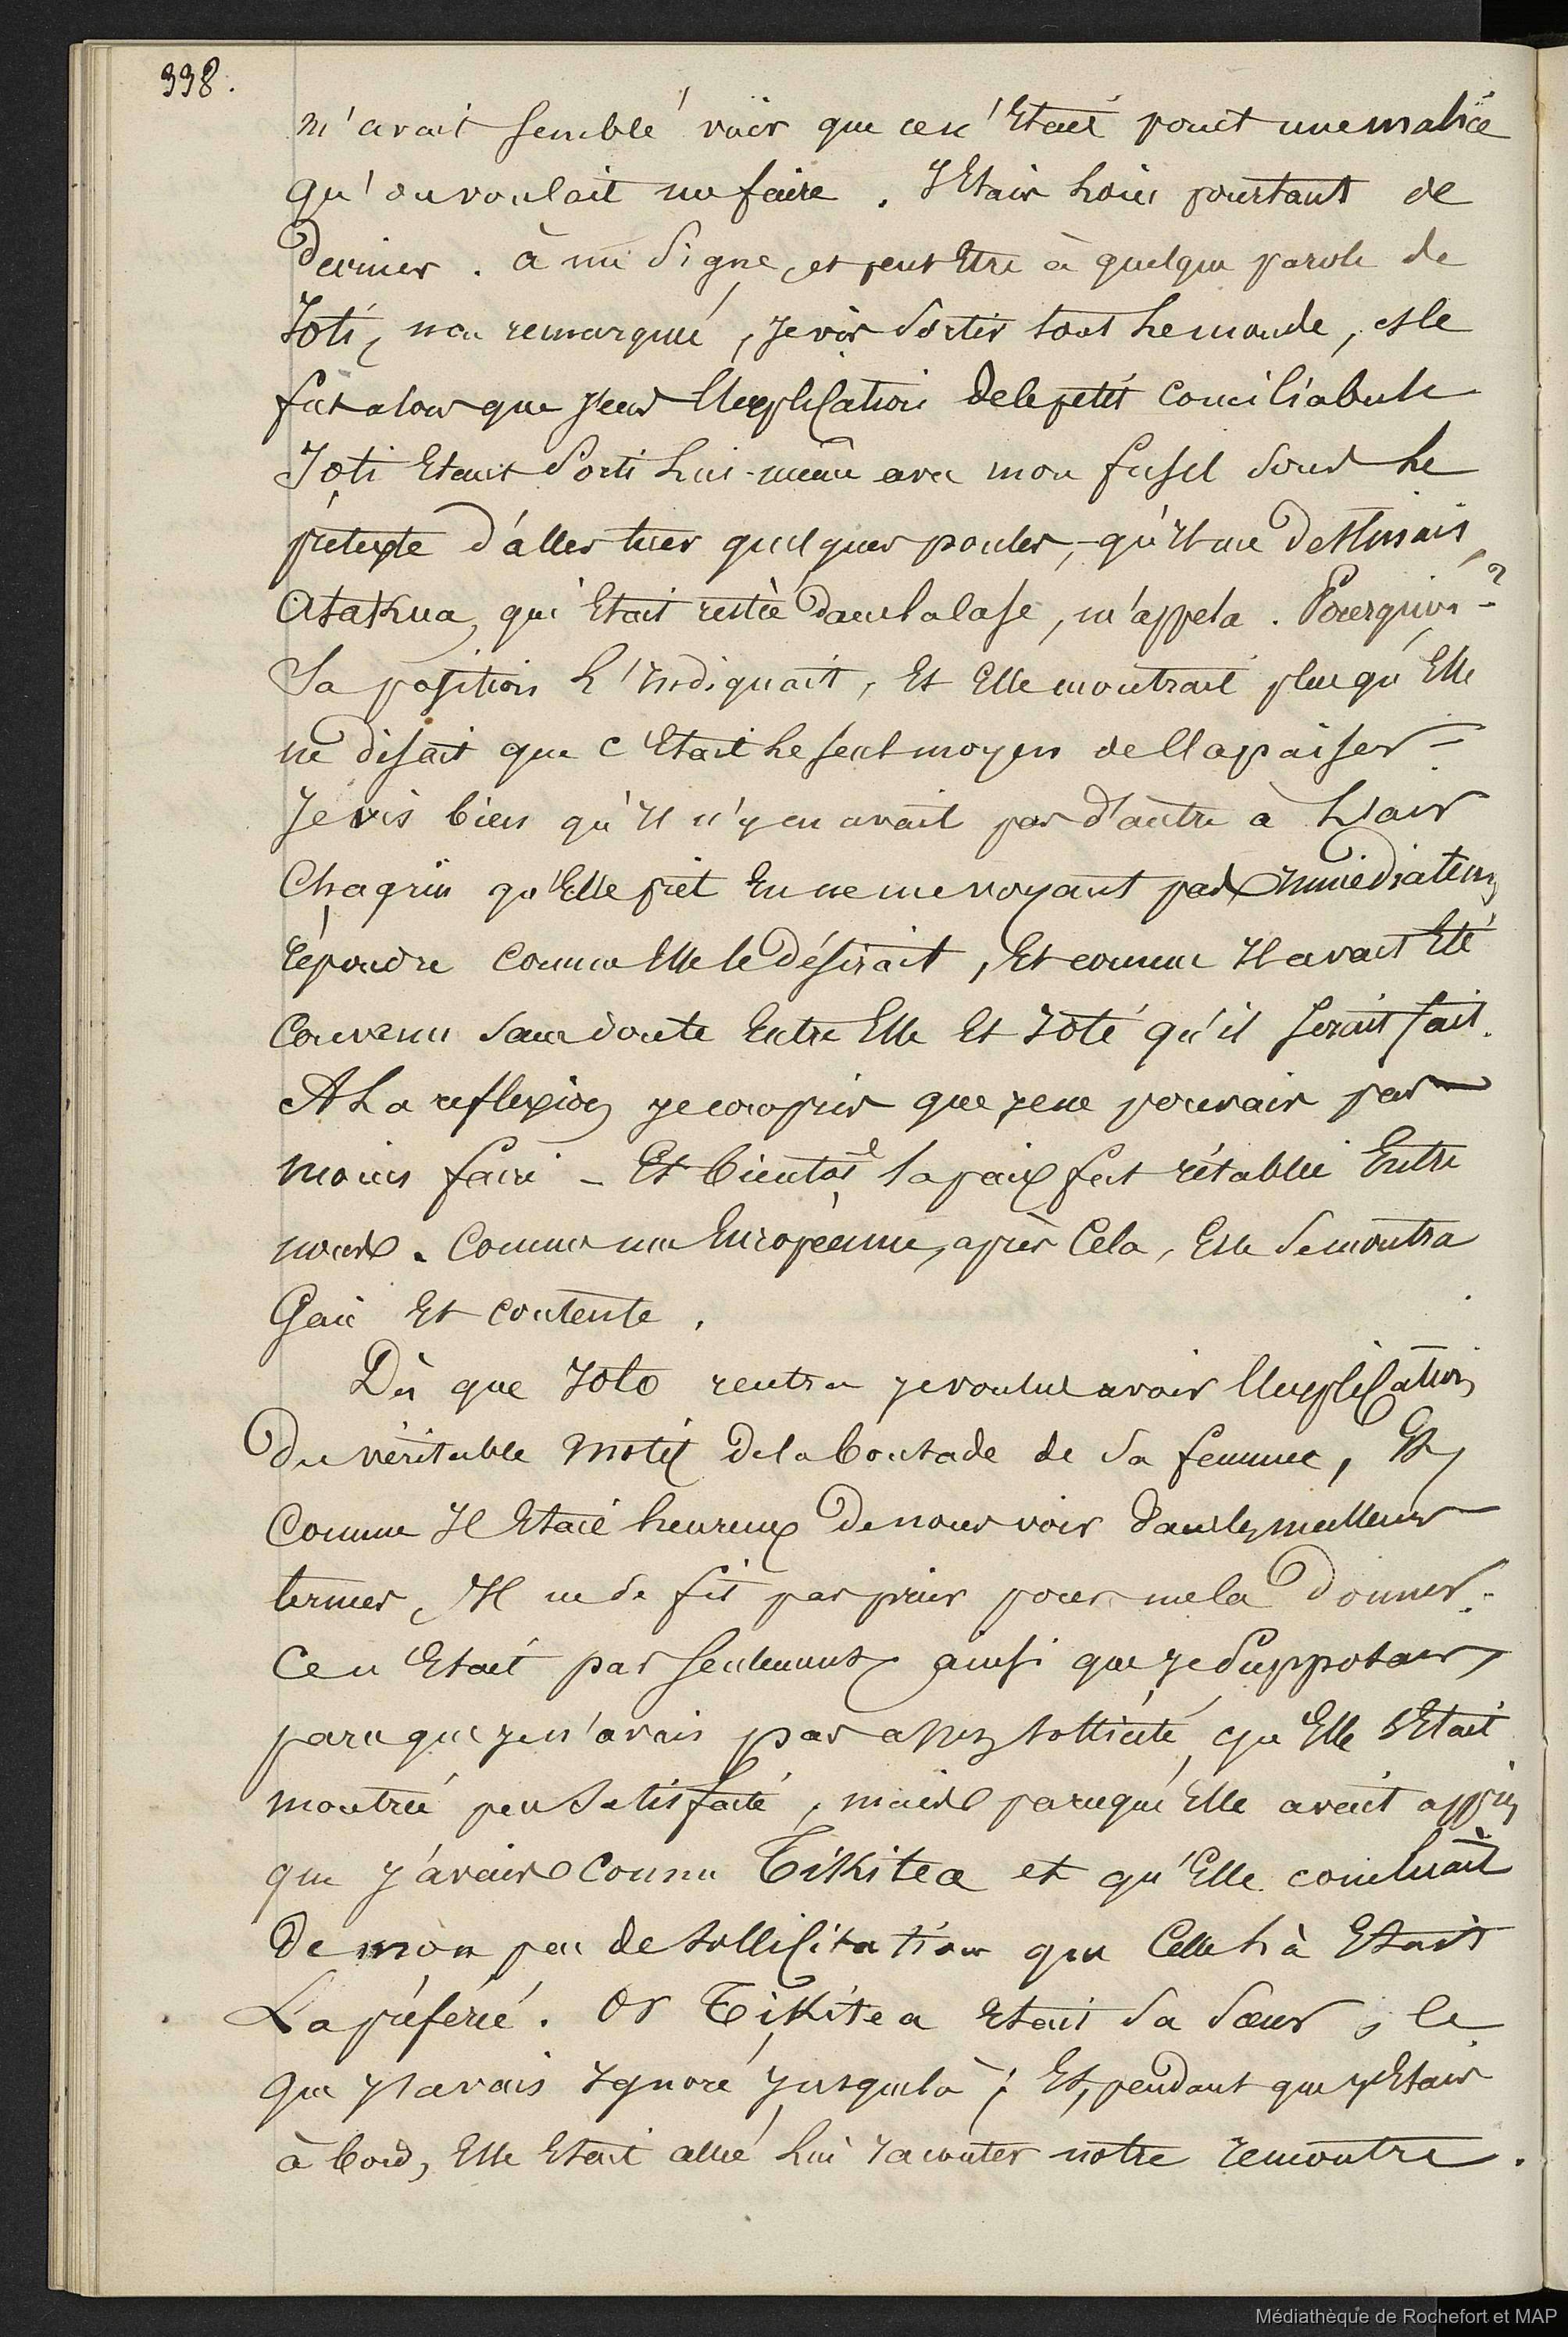 338.
m'avait semblé voir que ce n'Etait point une malice
qu'on voulait me faire. J'Etais loin pourtant de
deviner. à un Signe, et peut Etre à quelque parole de
Ioti, non remarqué, je vis Sortir tout le monde, et le
fut alors que j'eus l'Explication de le petit Conciliabule
Ioti Etait Sorti lui-même avec mon fusil Sous le
prétexte d'aller tuer quelques poules, qu'Il me destinais,
Atakua, qui Etait restée dans la Case, m'appela. Pourquoi-?
Sa position l'indiquait, Et Elle montrait plus qu'Elle
ne disait que c'Etait le seul moyen de l'apaiser -
Je vis bien qu'Il n'y en avait pas d'autre à l'air
Chagrin qu'Elle prit En ne me voyant pas Immédiatem
répondre comme Elle le désirait, Et comme Il avait Eté
Convenu Sans doute Entre Elle Et Ioté qu'il serait fait.
A La reflexion je compris que je ne pouvais pas
moins faire - Et bientôt la paix fut rétablie Entre
nous. Comme une Européenne, après Cela, Elle Se montra
Gaie Et contente.
Dès que Ioto rentra je voulus avoir l'Explication
Du véritable motif de la boutade de Sa femme, Et
Comme Il Etait heureux de nous voir dans les meilleurs
termes, Il ne Se fit pas prier pour me la donner.
Ce n'Etait pas seulement ainsi que je Supposais,
parce que je n'avais pas assez sollicité, qu'Elle S'Etait
montrée peu Satisfaite, mais parcequ'Elle avait appris
que j'avais Connu Tikitea et qu'Elle concluait
De mon peu de sollicitation que Celle là Etait
La préférée. Or Tikitea Etait Sa Sœur, le
que j'avais Ignoré jusque là; Et, pendant que j'Etais
à bord, Elle Etait allée lui raconter notre rencontre.
Médiathèque de Rochefort et MAP